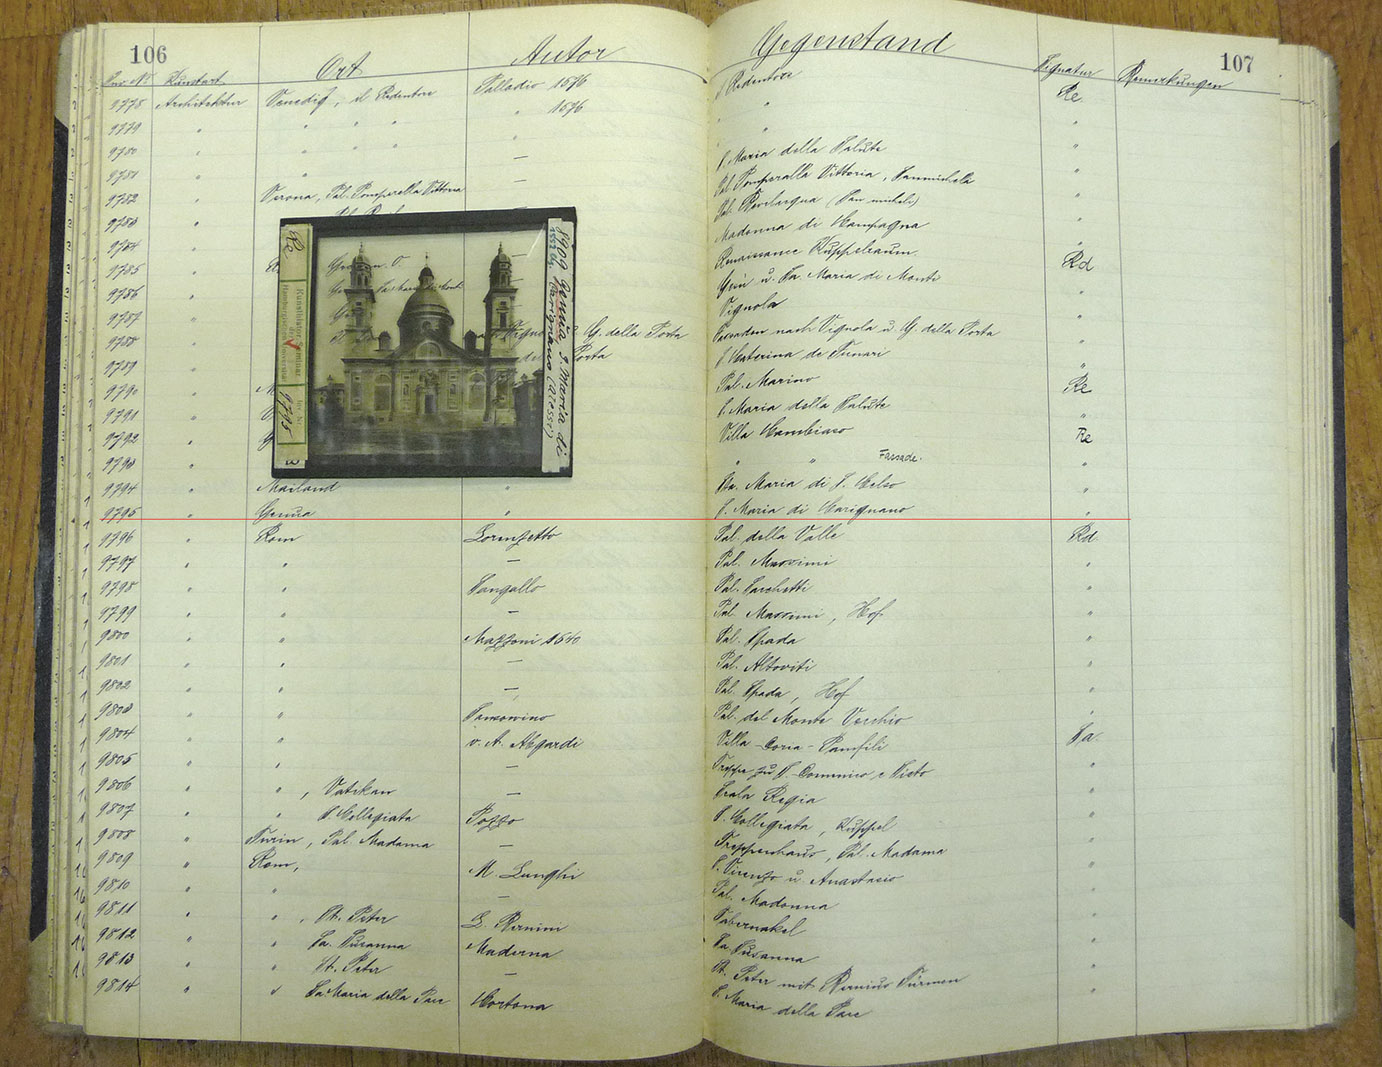 106
107
Inv. No. Kunstart Ort Autor Gegenstand Signatur Bemerkungen
9778 Architektur Venedig, il Redentore Palladio 1576 il Redentore Re
9779 " " " " " 1576 " "
9780 " " " " — S. Maria della Salute "
9781 " — Pal. Pompeialla Vittoria, Sanmicheli "
9782 " Verona, Pal. Pompeialla Vittoria Pal. Bevilaqua (San micheli) "
9783 " — Madonna di Campagna "
9784 " Renaissance Kuppelraum Rd
9785 " Sa. Maria di Monti "
9786 " Vignola "
9787 " Fassaden nach Vignola u. G. della Porta "
9788 " Vignola u. G. della Porta S. Caterina de Funari "
9789 " della Porta Pal. Marino Re
9790 " S. Maria della Salute "
9791 " Villa Cambiaso Re
9792 " " " Fassade. "
9793 "
9794 " Mailand " Sta. Maria di S. Celso "
9795 " Genua " S. Maria di Carignano "
9796 " Rom Lorenzetto Pal. della Valle Rd
9797 " " — Pal. Massimi "
9798 " " Sangallo Pal. Sacchetti "
9799 " " — Pal. Massimi, Hof "
9800 " " Mazzoni 1540 Pal. Spada "
9801 " " — Pal. Altoviti "
9802 " " — Pal. Spada, Hof "
9803 " " Sansovino Pal. del Monte Vecchio "
9804 " " v. A. Algardi Villa Doria-Pamfili Ba.
9805 " " — Treppe zu S. Domenico e Sisto "
9806 " ", Vatikan — Scala Regia "
9807 " " S. Collegiata Pozzo S. Collegiata, Kuppel "
9808 " Turin, Pal. Madama — Treppenhaus, Pal. Madama "
9809 " Rom, M. Lunghi S. Vicenzo u. Anastasio "
9810 " " — Pal. Madonna "
9811 " ", St. Peter L. Bernini Tabernakel "
9812 " " Sa. Susanna Maderna Sa. Susanna "
9813 " " St. Peter — St. Peter mit Berninis Türmen "
9814 " " Sa. Maria della Pace Cortona S. Maria della Pace "
Re
9795
8909 Genua S. Maria di
Carignano (Alessi)